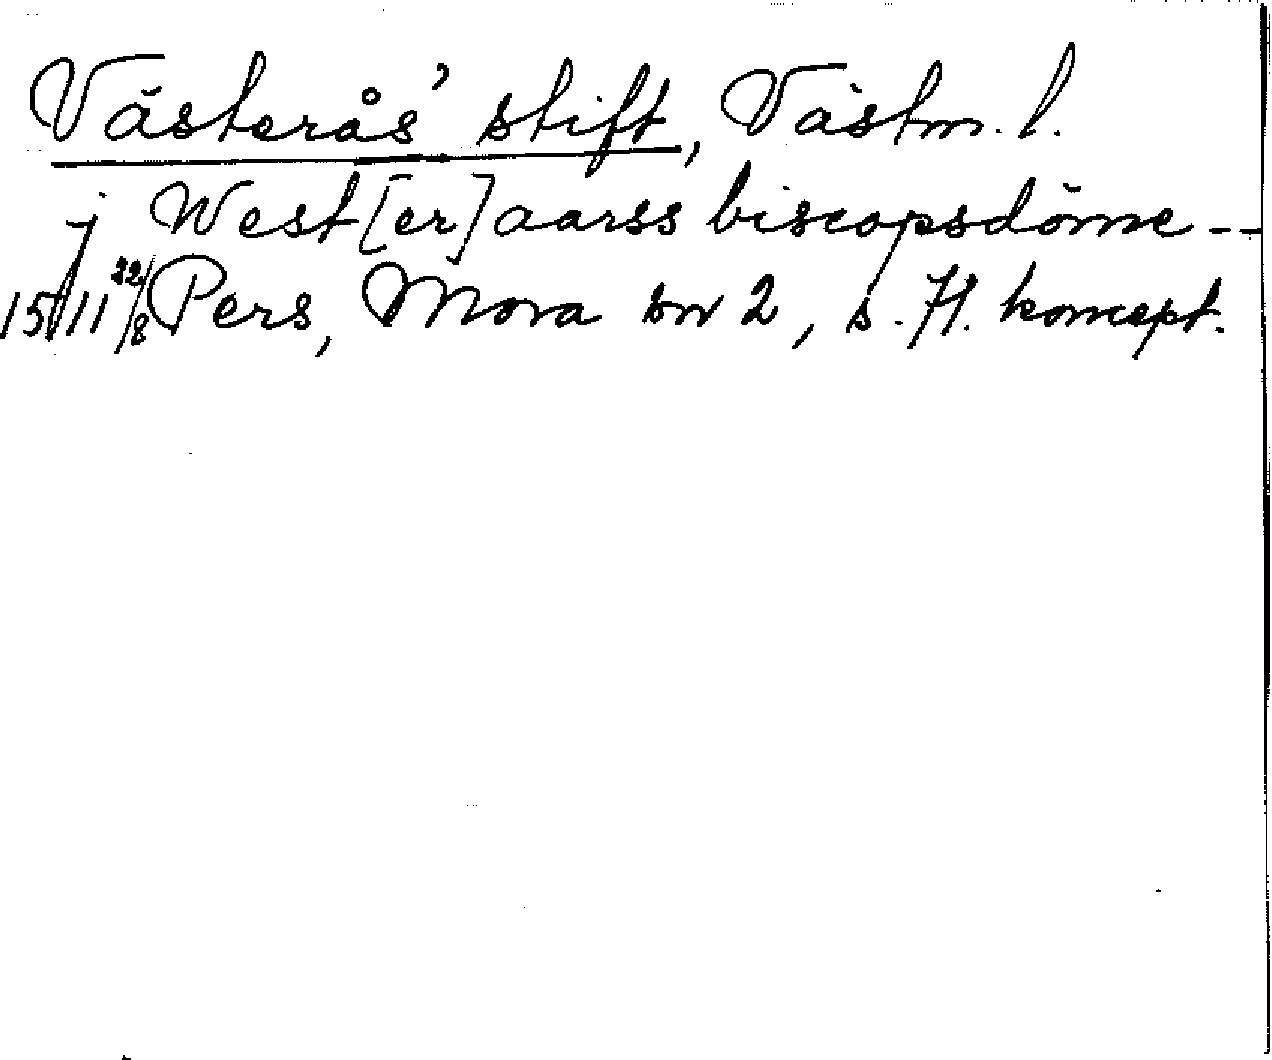 Västerås' stift, Västm. l.
j West[er]aarss biscopsdöme --
1511 22/8 Pers, Mora sn 2, s. 71. koncept.